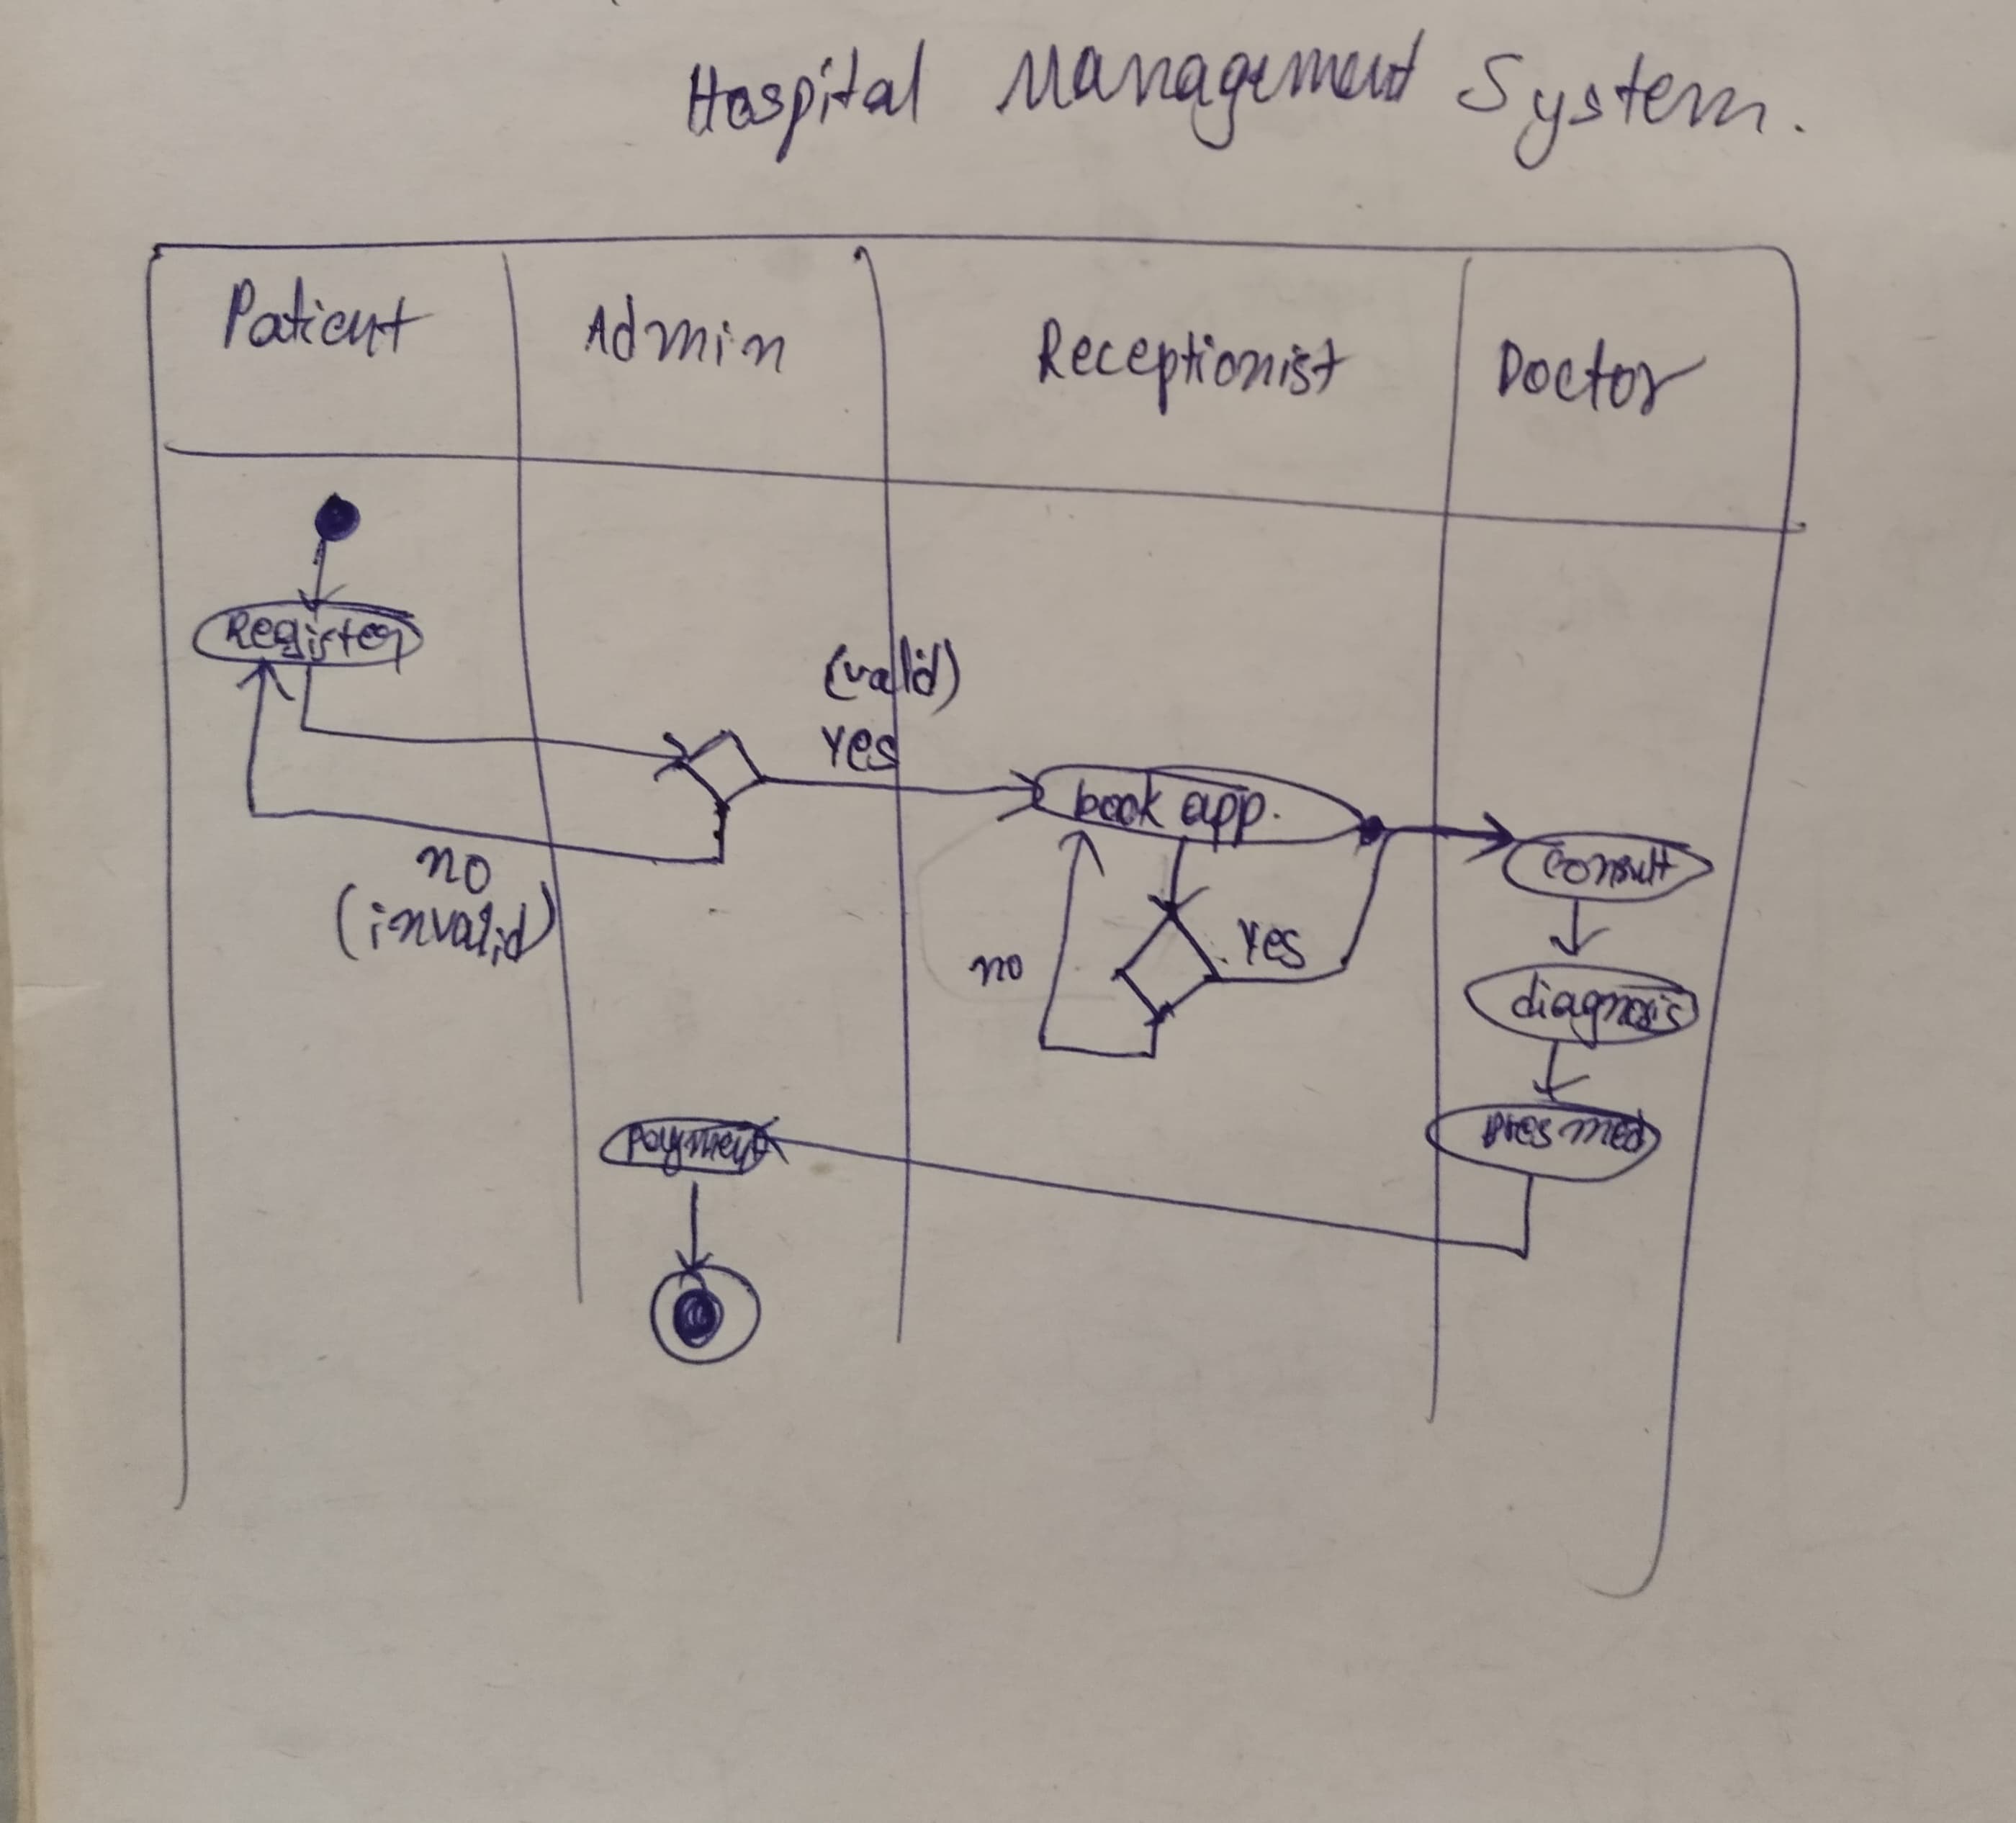 Hospital Management System.
Patient
Admin
Receptionist
Doctor
Register
(valid)
Yes
no
(invalid)
book app.
Yes
no
consult
diagnosis
pres med
payment